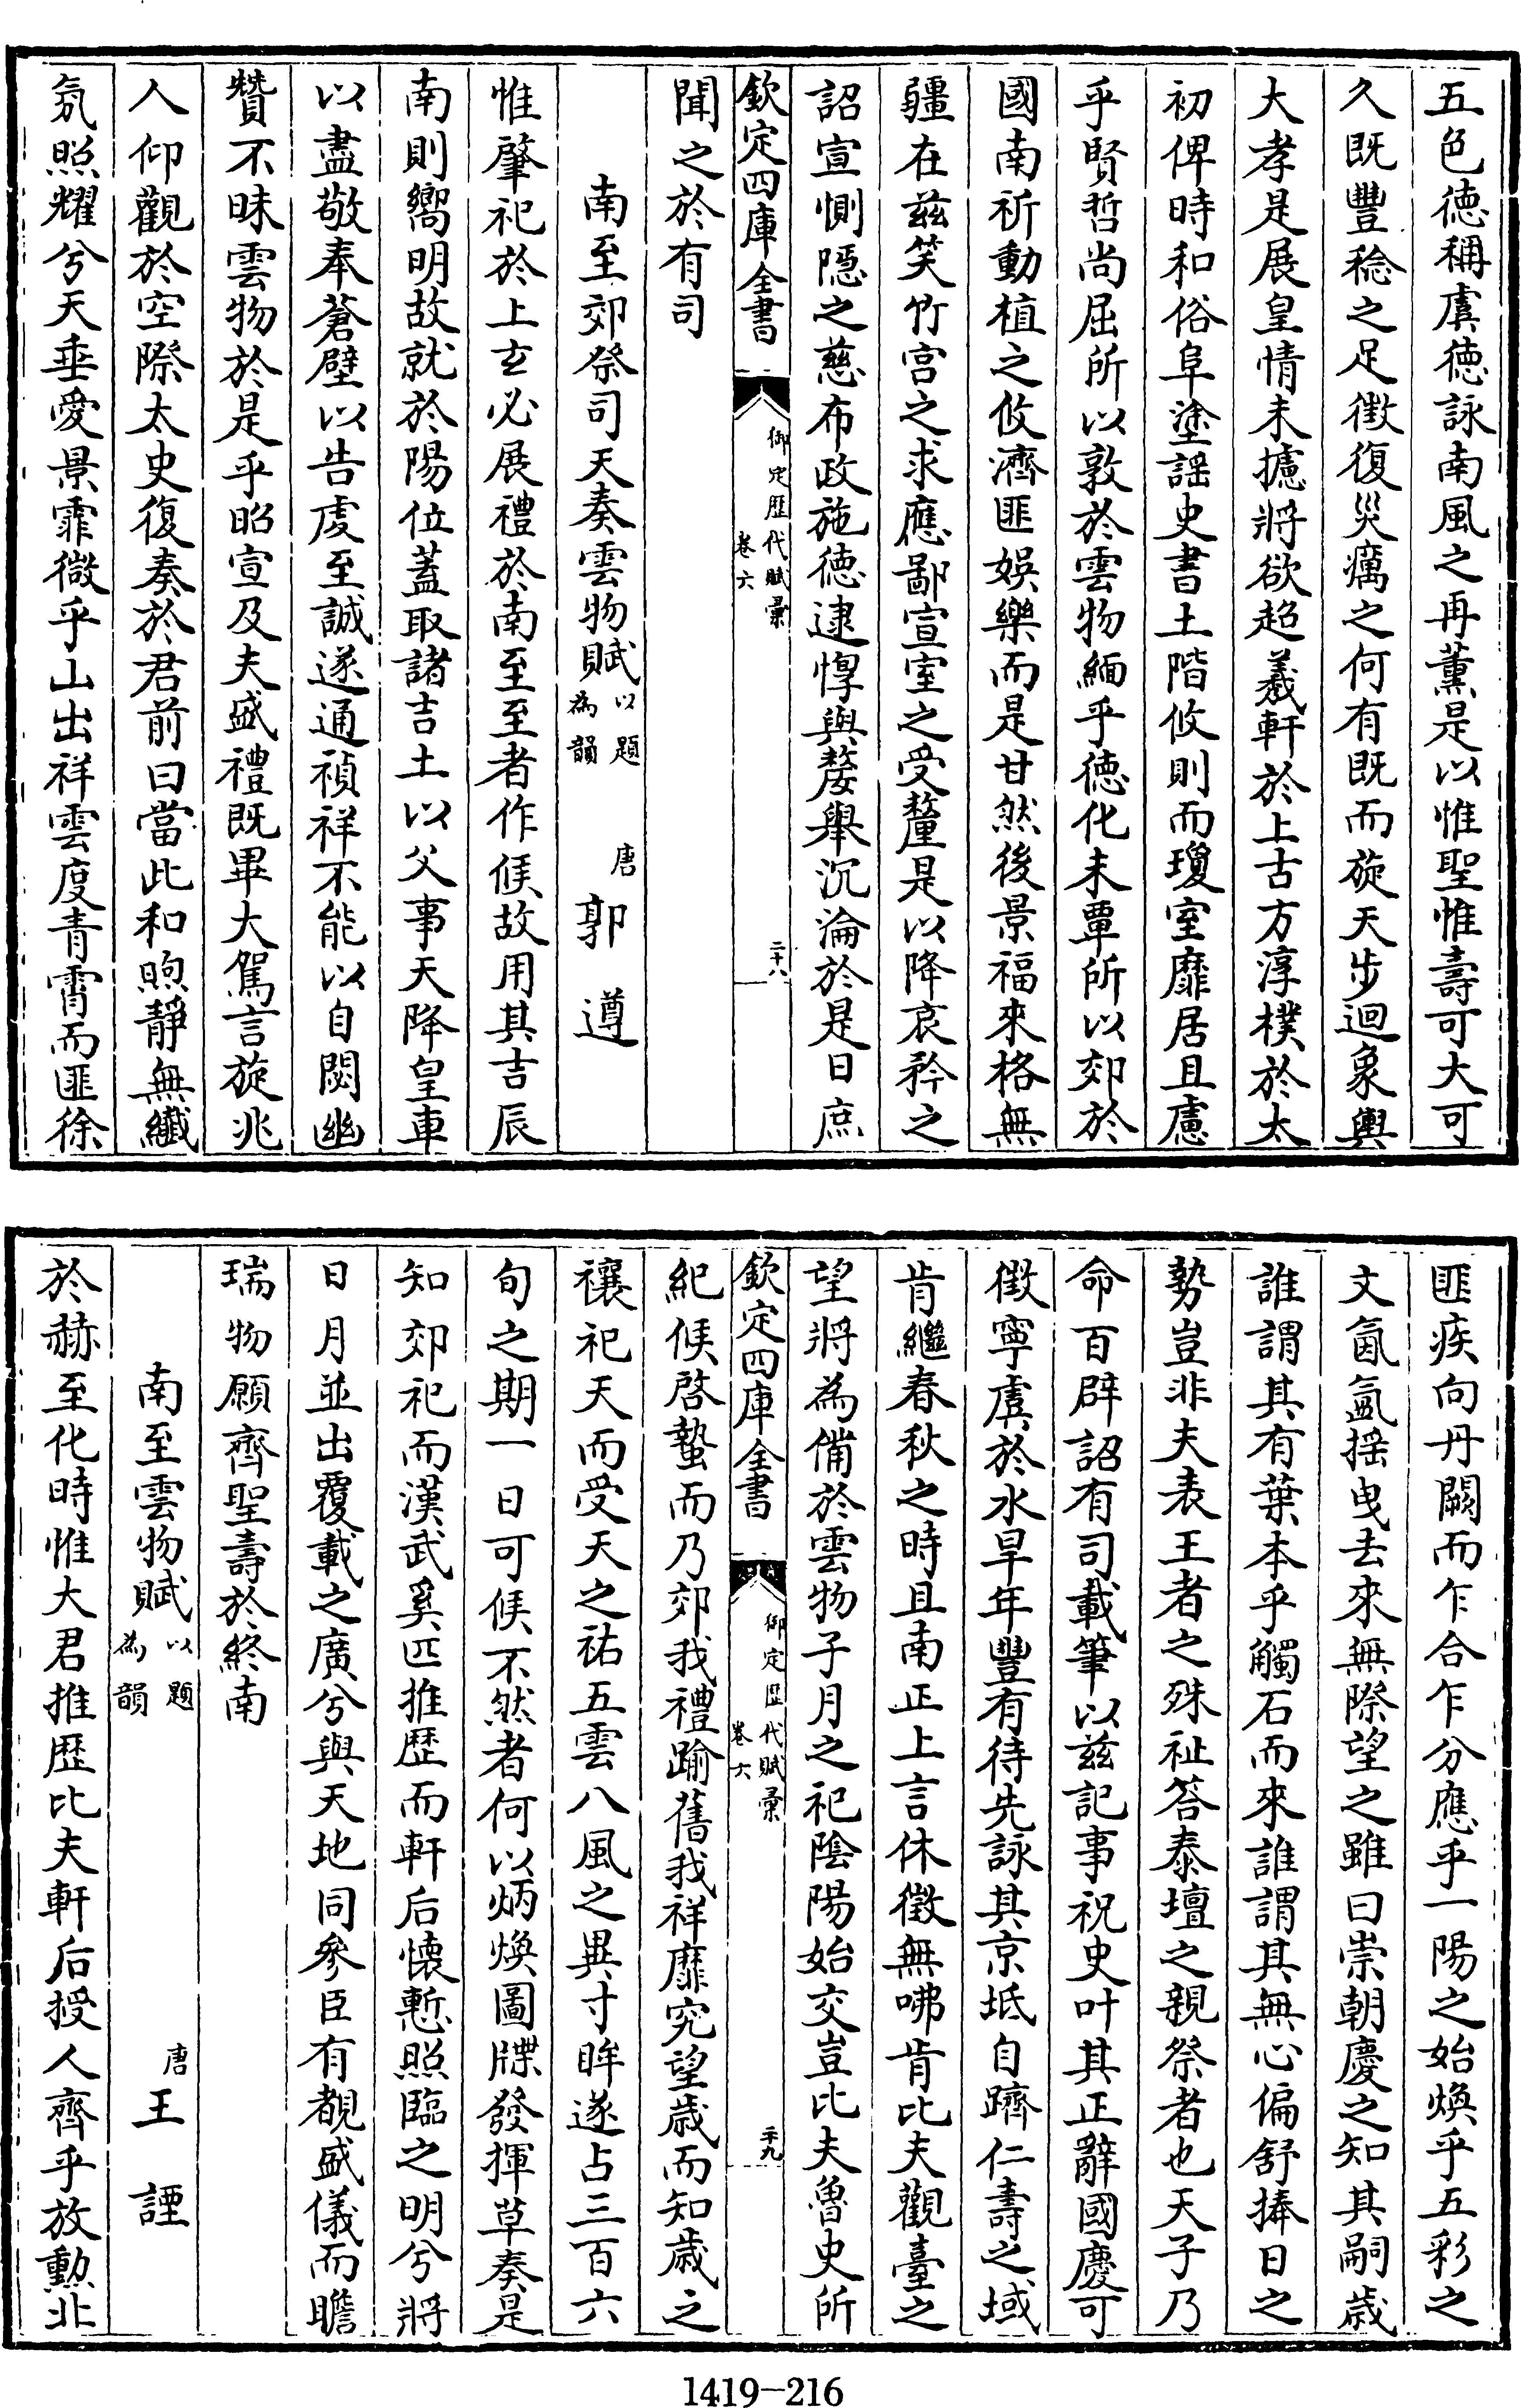 五色徳稱虞徳詠南風之再薫是以惟聖惟壽可大可
久既豐稔之足徴復災癘之何有既而旋天步迴象輿
大孝是展皇情未攄將欲超羲軒於上古方淳樸於太
初俾時和俗阜塗謡史書土階攸則而瓊室靡居且慮
乎賢哲尚屈所以敦於雲物緬乎徳化未覃所以郊於
國南祈動植之攸濟匪娯樂而是甘然後景福來格無
疆在兹笑竹宫之求應鄙宣室之受釐是以降哀矜之
詔宣惻隠之慈布政施徳逮惸與嫠舉沉淪於是日庶
欽定四庫全書
御定歴代賦彙
卷六
二十八
聞之於有司
南至郊祭司天奏雲物賦以題為韻 唐郭遵
惟肇祀於上玄必展禮於南至至者作候故用其吉辰
南則嚮明故就於陽位蓋取諸吉土以父事天降皇車
以盡敬奉蒼壁以告虔至誠遂通禎祥不能以自閟幽
贊不昧雲物於是乎昭宣及夫盛禮既畢大駕言旋兆
人仰觀於空際太史復奏於君前曰當此和煦靜無纖
氛照耀兮天垂愛景霏微乎山出祥雲度青霄而匪徐
匪疾向丹闕而乍合乍分應乎一陽之始煥乎五彩之
文氤氲揺曳去來無際望之雖曰崇朝慶之知其嗣歳
誰謂其有葉本乎觸石而來誰謂其無心偏舒捧日之
勢豈非夫表王者之殊祉答泰壇之親祭者也天子乃
命百辟詔有司載筆以兹記事祝史叶其正辭國慶可
徴寧虞於水旱年豐有待先詠其京坻自躋仁壽之域
肯繼春秋之時且南正上言休徴無咈肯比夫觀臺之
望將為備於雲物子月之祀陰陽始交豈比夫魯史所
欽定四庫全書
御定歴代賦彙
卷六
二十九
紀候啓蟄而乃郊我禮踰舊我祥靡究望歳而知歳之
禳祀天而受天之祐五雲八風之異寸眸遂占三百六
旬之期一日可候不然者何以炳煥圖牒發揮草奏是
知郊祀而漢武奚匹推歴而軒后懐慙照臨之明兮將
日月並出覆載之廣兮與天地同參臣有覩盛儀而瞻
瑞物願齊聖壽於終南
南至雲物賦以題為韻 唐王諲
於赫至化時惟大君推歴比夫軒后授人齊乎放勲北
1419-216